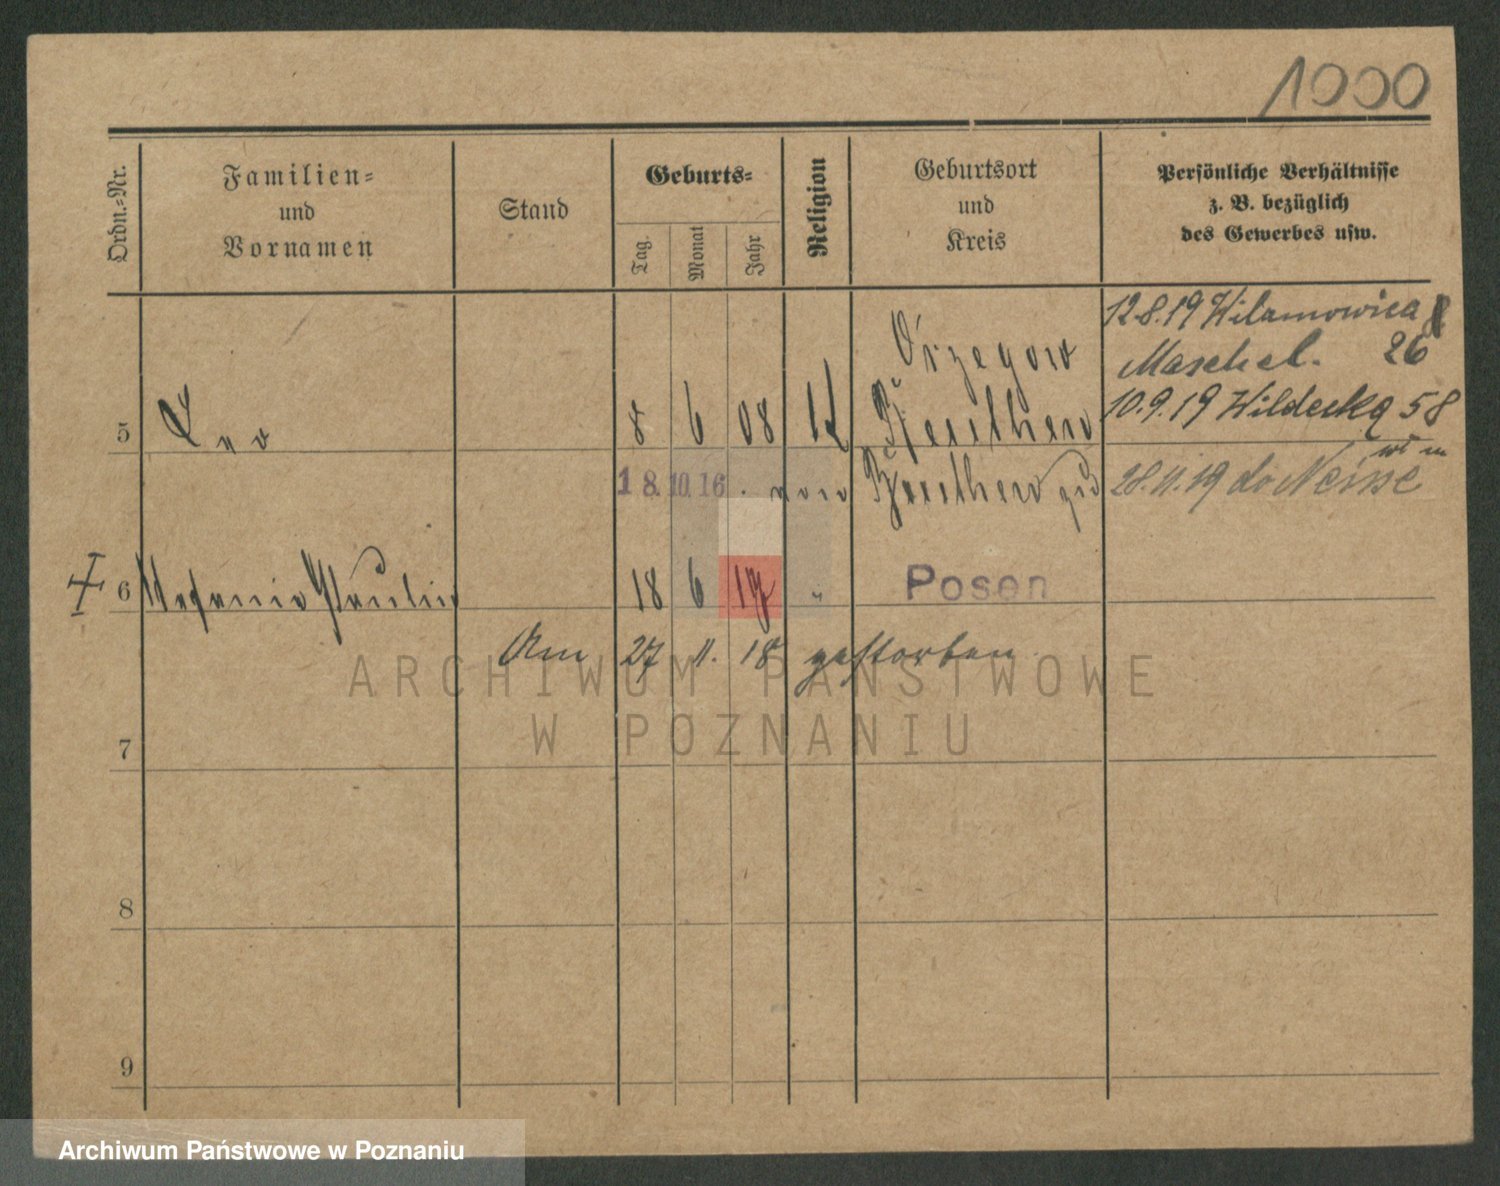 1000
Ordn.-Nr.
Familien-
und
Vornamen
Stand
Geburts-
Tag.
Monat
Jahr
Religion
Geburtsort
und
Kreis
Persönliche Verhältnisse
z. B. bezüglich
des Gewerbes usw.
12.8.19 Wilamowica 8
Maschel. 26
10.9.19 Wildeckg 58
5 Leo 8 6 08 Orzegow
Beuthen
18.10.16. von Beuthen zu
28.11.19 do Neisse
6 Stefanie Paulin 18 6 17 " Posen
Am 27 11. 18 gestorben
ARCHIWUM PAŃSTWOWE
W POZNANIU
7
8
9
Archiwum Państwowe w Poznaniu